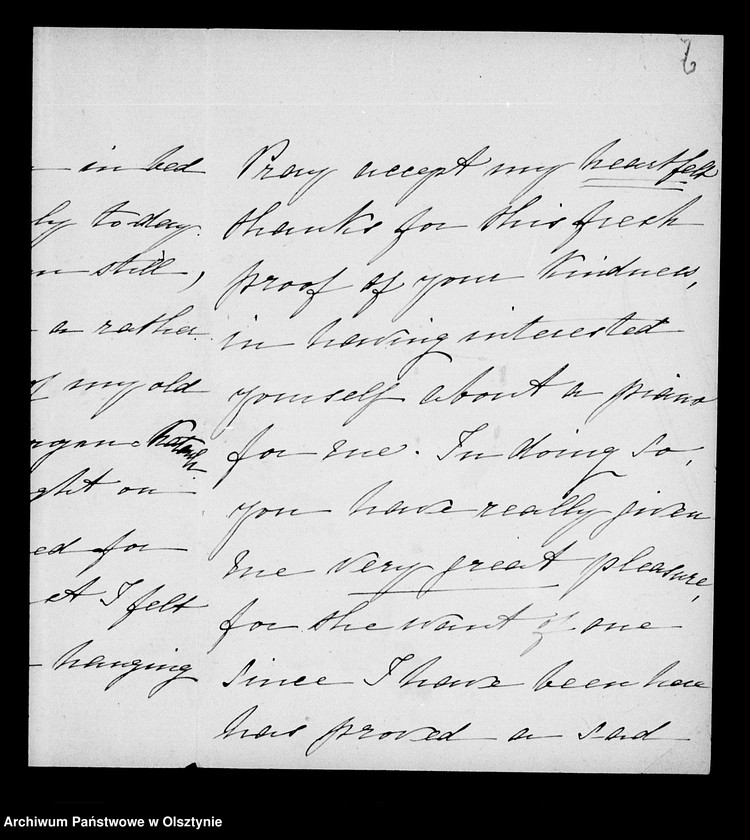 6
in bed
ly today.
still,
a rather
my old
organ
ght on
ed for
et I felt
hanging
Pray accept my heartfelt
thanks for this fresh
proof of your kindness,
in having interested
yourself about a piano
for me. In doing so,
you have really given
me very great pleasure,
for the want of one
since I have been here
has proved a sad
Archiwum Państwowe w Olsztynie